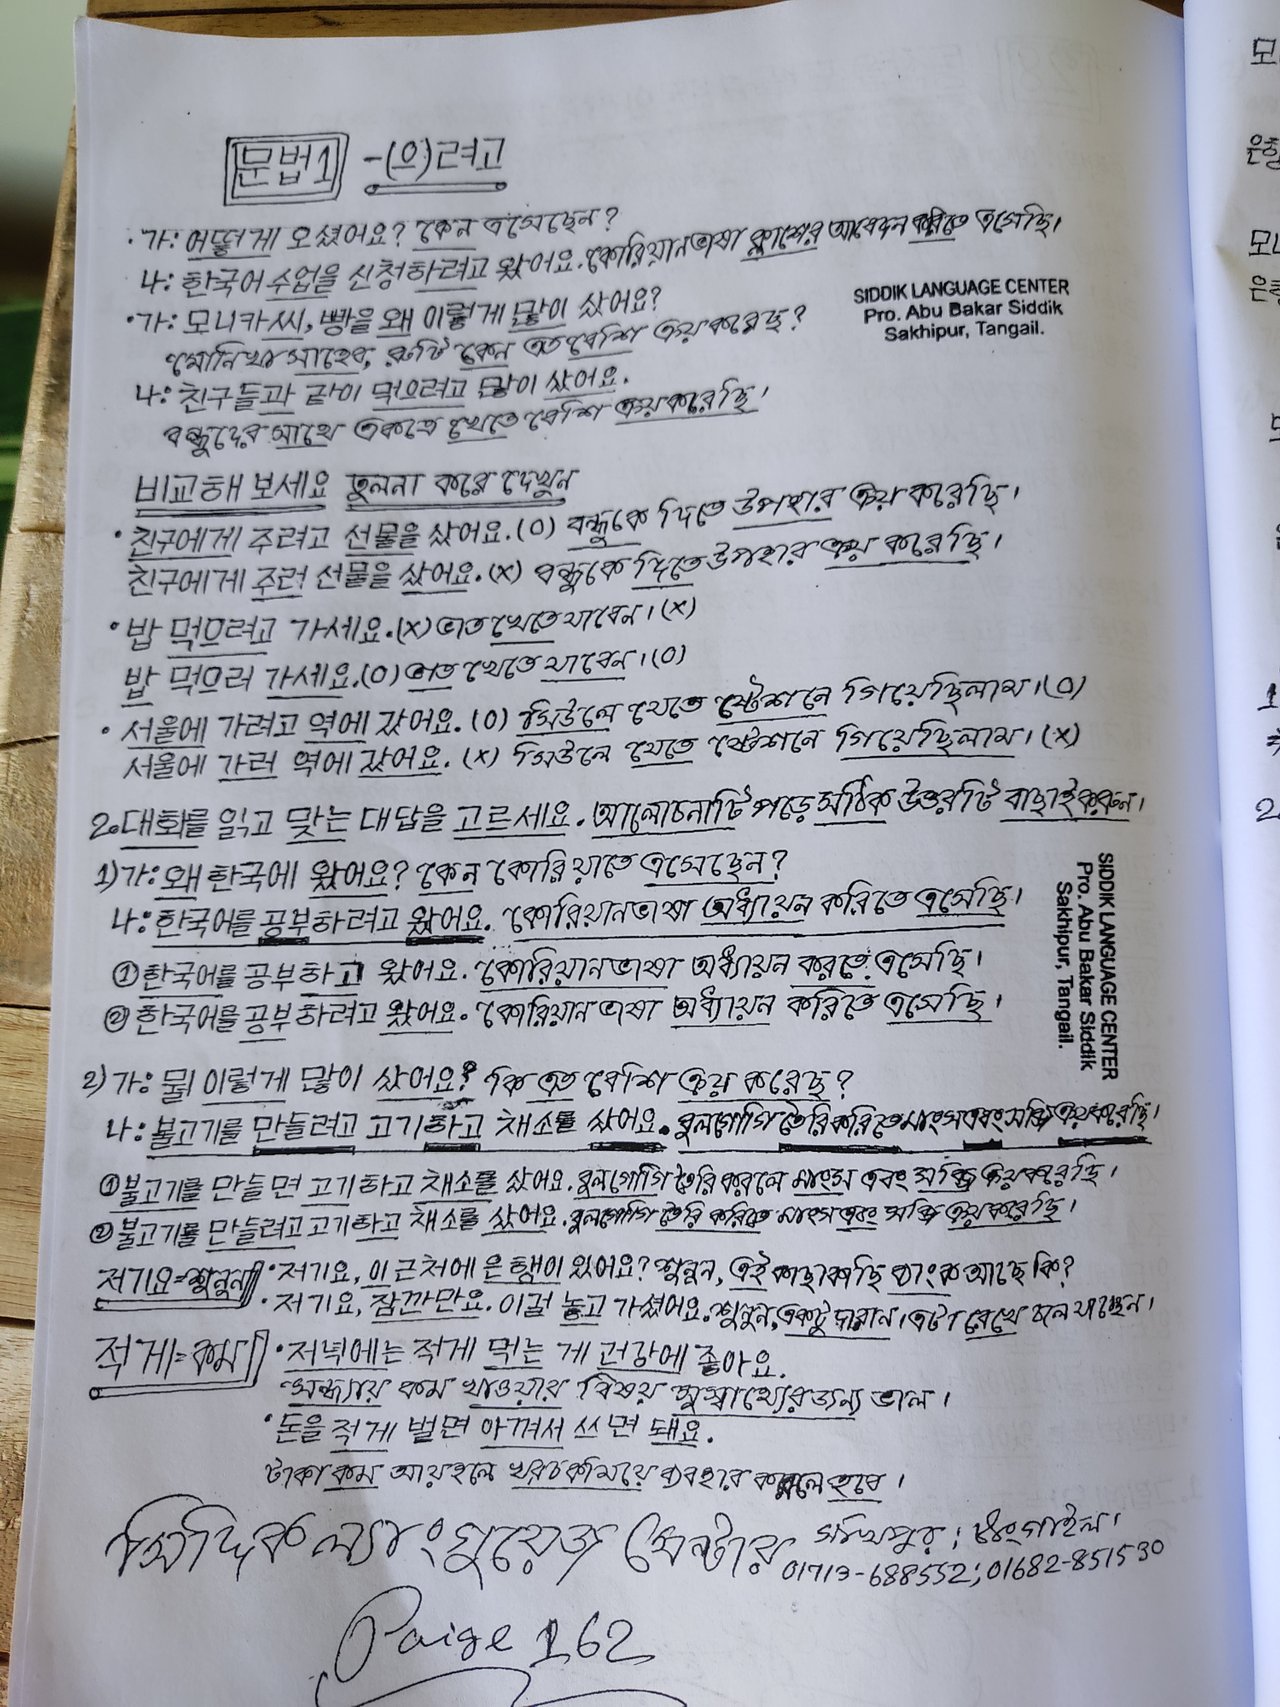 문법1 -(으)려고
· 가: 어떻게 오셨어요? কেন এসেছেন?
나: 한국어 수업을 신청하려고 왔어요. কোরিয়ান ভাষা ক্লাশের আবেদন করিতে এসেছি।
· 가: 모니카 씨, 빵을 왜 이렇게 많이 샀어요?
মোনিখা সাহেব, রুটি কেন এত বেশি ক্রয় করেছ?
나: 친구들과 같이 먹으려고 많이 샀어요.
বন্ধুদের সাথে একত্রে খেতে বেশি ক্রয় করেছি।
SIDDIK LANGUAGE CENTER
Pro. Abu Bakar Siddik
Sakhipur, Tangail.
비교해 보세요 তুলনা করে দেখুন
· 친구에게 주려고 선물을 샀어요. (O) বন্ধুকে দিতে উপহার ক্রয় করেছি।
친구에게 주러 선물을 샀어요. (X) বন্ধুকে দিতে উপহার ক্রয় করেছি।
· 밥 먹으려고 가세요. (X) ভাত খেতে যাবেন। (X)
밥 먹으러 가세요. (O) ভাত খেতে যাবেন। (O)
· 서울에 가려고 역에 갔어요. (O) সিউলে যেতে ষ্টেশনে গিয়েছিলাম। (O)
서울에 가러 역에 갔어요. (X) সিউলে যেতে ষ্টেশনে গিয়েছিলাম। (X)
2. 대화를 읽고 맞는 대답을 고르세요. আলোচনাটি পড়ে সঠিক উত্তরটি বাছাই করুন।
1) 가: 왜 한국에 왔어요? কেন কোরিয়াতে এসেছেন?
나: 한국어를 공부하려고 왔어요. কোরিয়ান ভাষা অধ্যায়ন করিতে এসেছি।
① 한국어를 공부하고 왔어요. কোরিয়ান ভাষা অধ্যায়ন করতে এসেছি।
② 한국어를 공부하려고 왔어요. কোরিয়ান ভাষা অধ্যায়ন করিতে এসেছি।
SIDDIK LANGUAGE CENTER
Pro. Abu Bakar Siddik
Sakhipur, Tangail.
2) 가: 뭘 이렇게 많이 샀어요? কি এত বেশি ক্রয় করেছ?
나: 불고기를 만들려고 고기하고 채소를 샀어요. বুলগোগি তৈরি করিতে মাংস এবং সব্জি ক্রয় করেছি।
① 불고기를 만들면 고기하고 채소를 샀어요. বুলগোগি তৈরি করলে মাংস এবং সব্জি ক্রয় করেছি।
② 불고기를 만들려고 고기하고 채소를 샀어요. বুলগোগি তৈরি করিতে মাংস এবং সব্জি ক্রয় করেছি।
저기요=শুনুন · 저기요, 이 근처에 은행이 있어요? শুনুন, এই কাছাকাছি ব্যাংক আছে কি?
· 저기요, 잠깐만요. 이걸 놓고 가셨어요. শুনুন, একটু দাড়ান। এটা রেখে চলে যাচ্ছেন।
적게=কম · 저녁에는 적게 먹는 게 건강에 좋아요.
সন্ধ্যায় কম খাওয়ার বিষয় সুস্বাস্থ্যের জন্য ভাল।
· 돈을 적게 벌면 아껴서 쓰면 돼요.
টাকা কম আয় হলে খরচ কমিয়ে ব্যবহার করলে হবে।
সিদ্দিক ল্যাংগুয়েজ সেন্টার সখিপুর; টাংগাইল।
01713-688552; 01682-851530
Paige 162